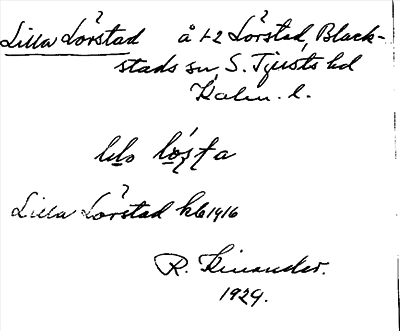 Lilla Lörstad å 1-2 Lörstad, Black-
stads sn, S. Tjusts hd
Kalm. l.
Lilla Lörstad hb 1916
R. Kinander.
1929.